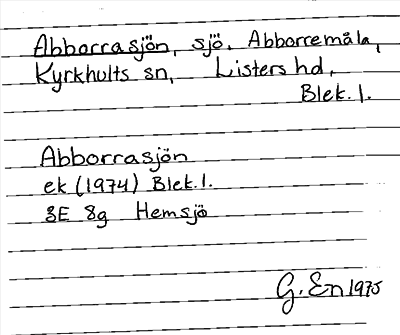 Abborrasjön, sjö, Abborremåla,
Kyrkhults sn, Listers hd,
Blek. l.
Abborrasjön
ek (1974) Blek. l.
3E 8g Hemsjö
G. En 1975